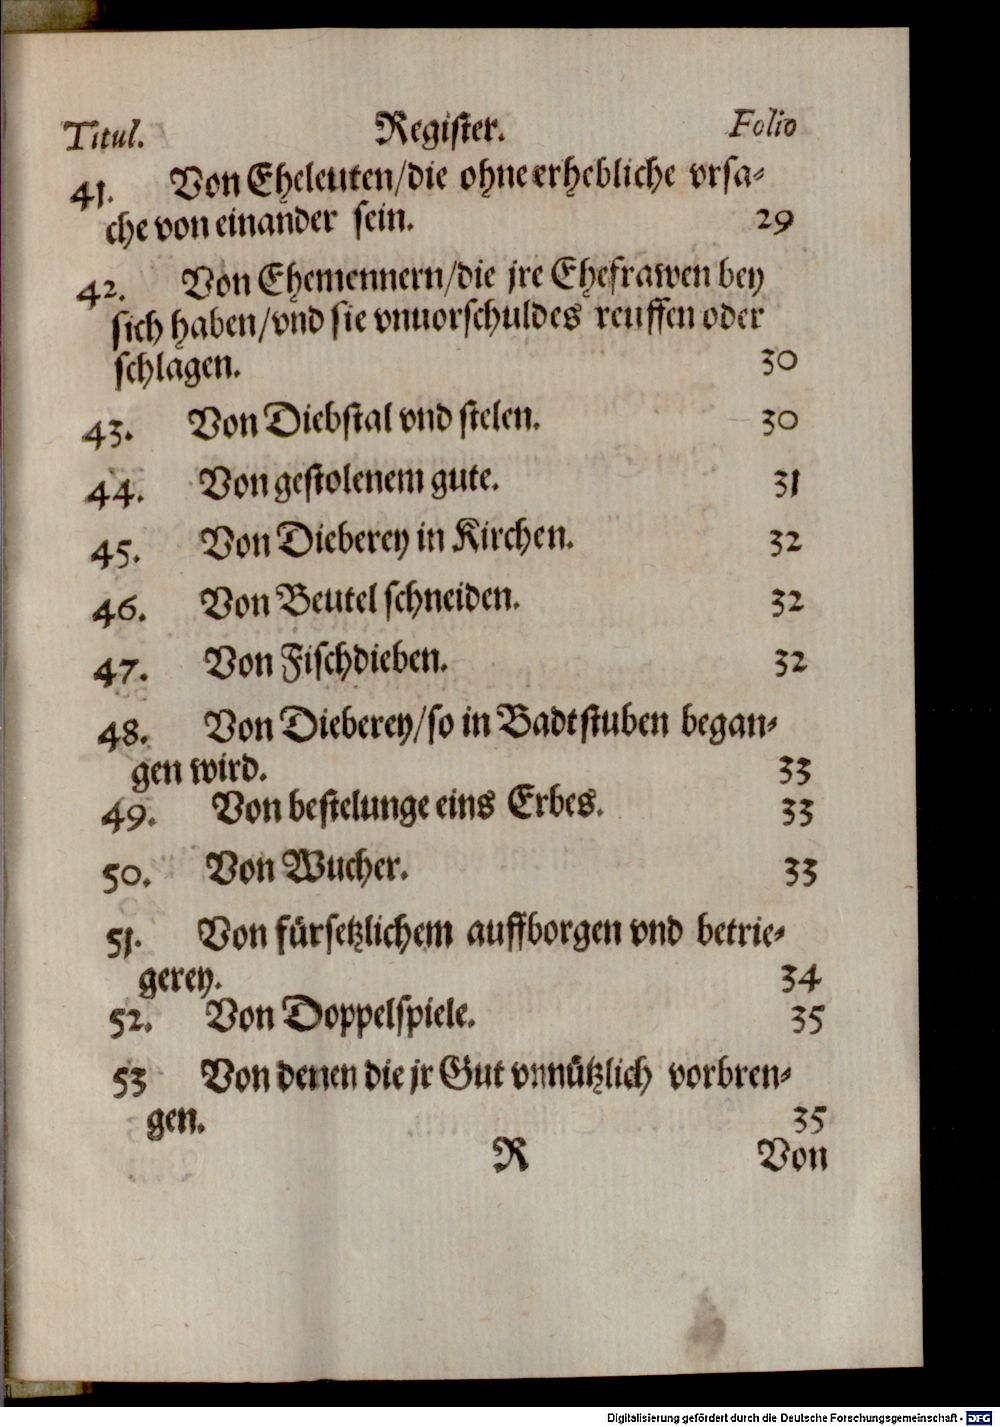 Titul. Register. Folio
41. Von Eheleuten/die ohne erhebliche vrsa-
che von einander sein. 29
42. Von Ehemennern/die jre Ehefrawen bey
sich haben/vnd sie vnuorschuldes reuffen oder
schlagen. 30
43. Von Diebstal vnd stelen. 30
44. Von gestolenem gute. 31
45. Von Dieberey in Kirchen. 32
46. Von Beutel schneiden. 32
47. Von Fischdieben. 32
48. Von Dieberey/so in Badtstuben began-
gen wird. 33
49. Von bestelunge eins Erbes. 33
50. Von Wucher. 33
51. Von fürsetzlichem auffborgen vnd betrie-
gerey. 34
52. Von Doppelspiele. 35
53 Von denen die jr Gut vnnützlich vorbren-
gen. 35
R Von
Digitalisierung gefördert durch die Deutsche Forschungsgemeinschaft - DFG